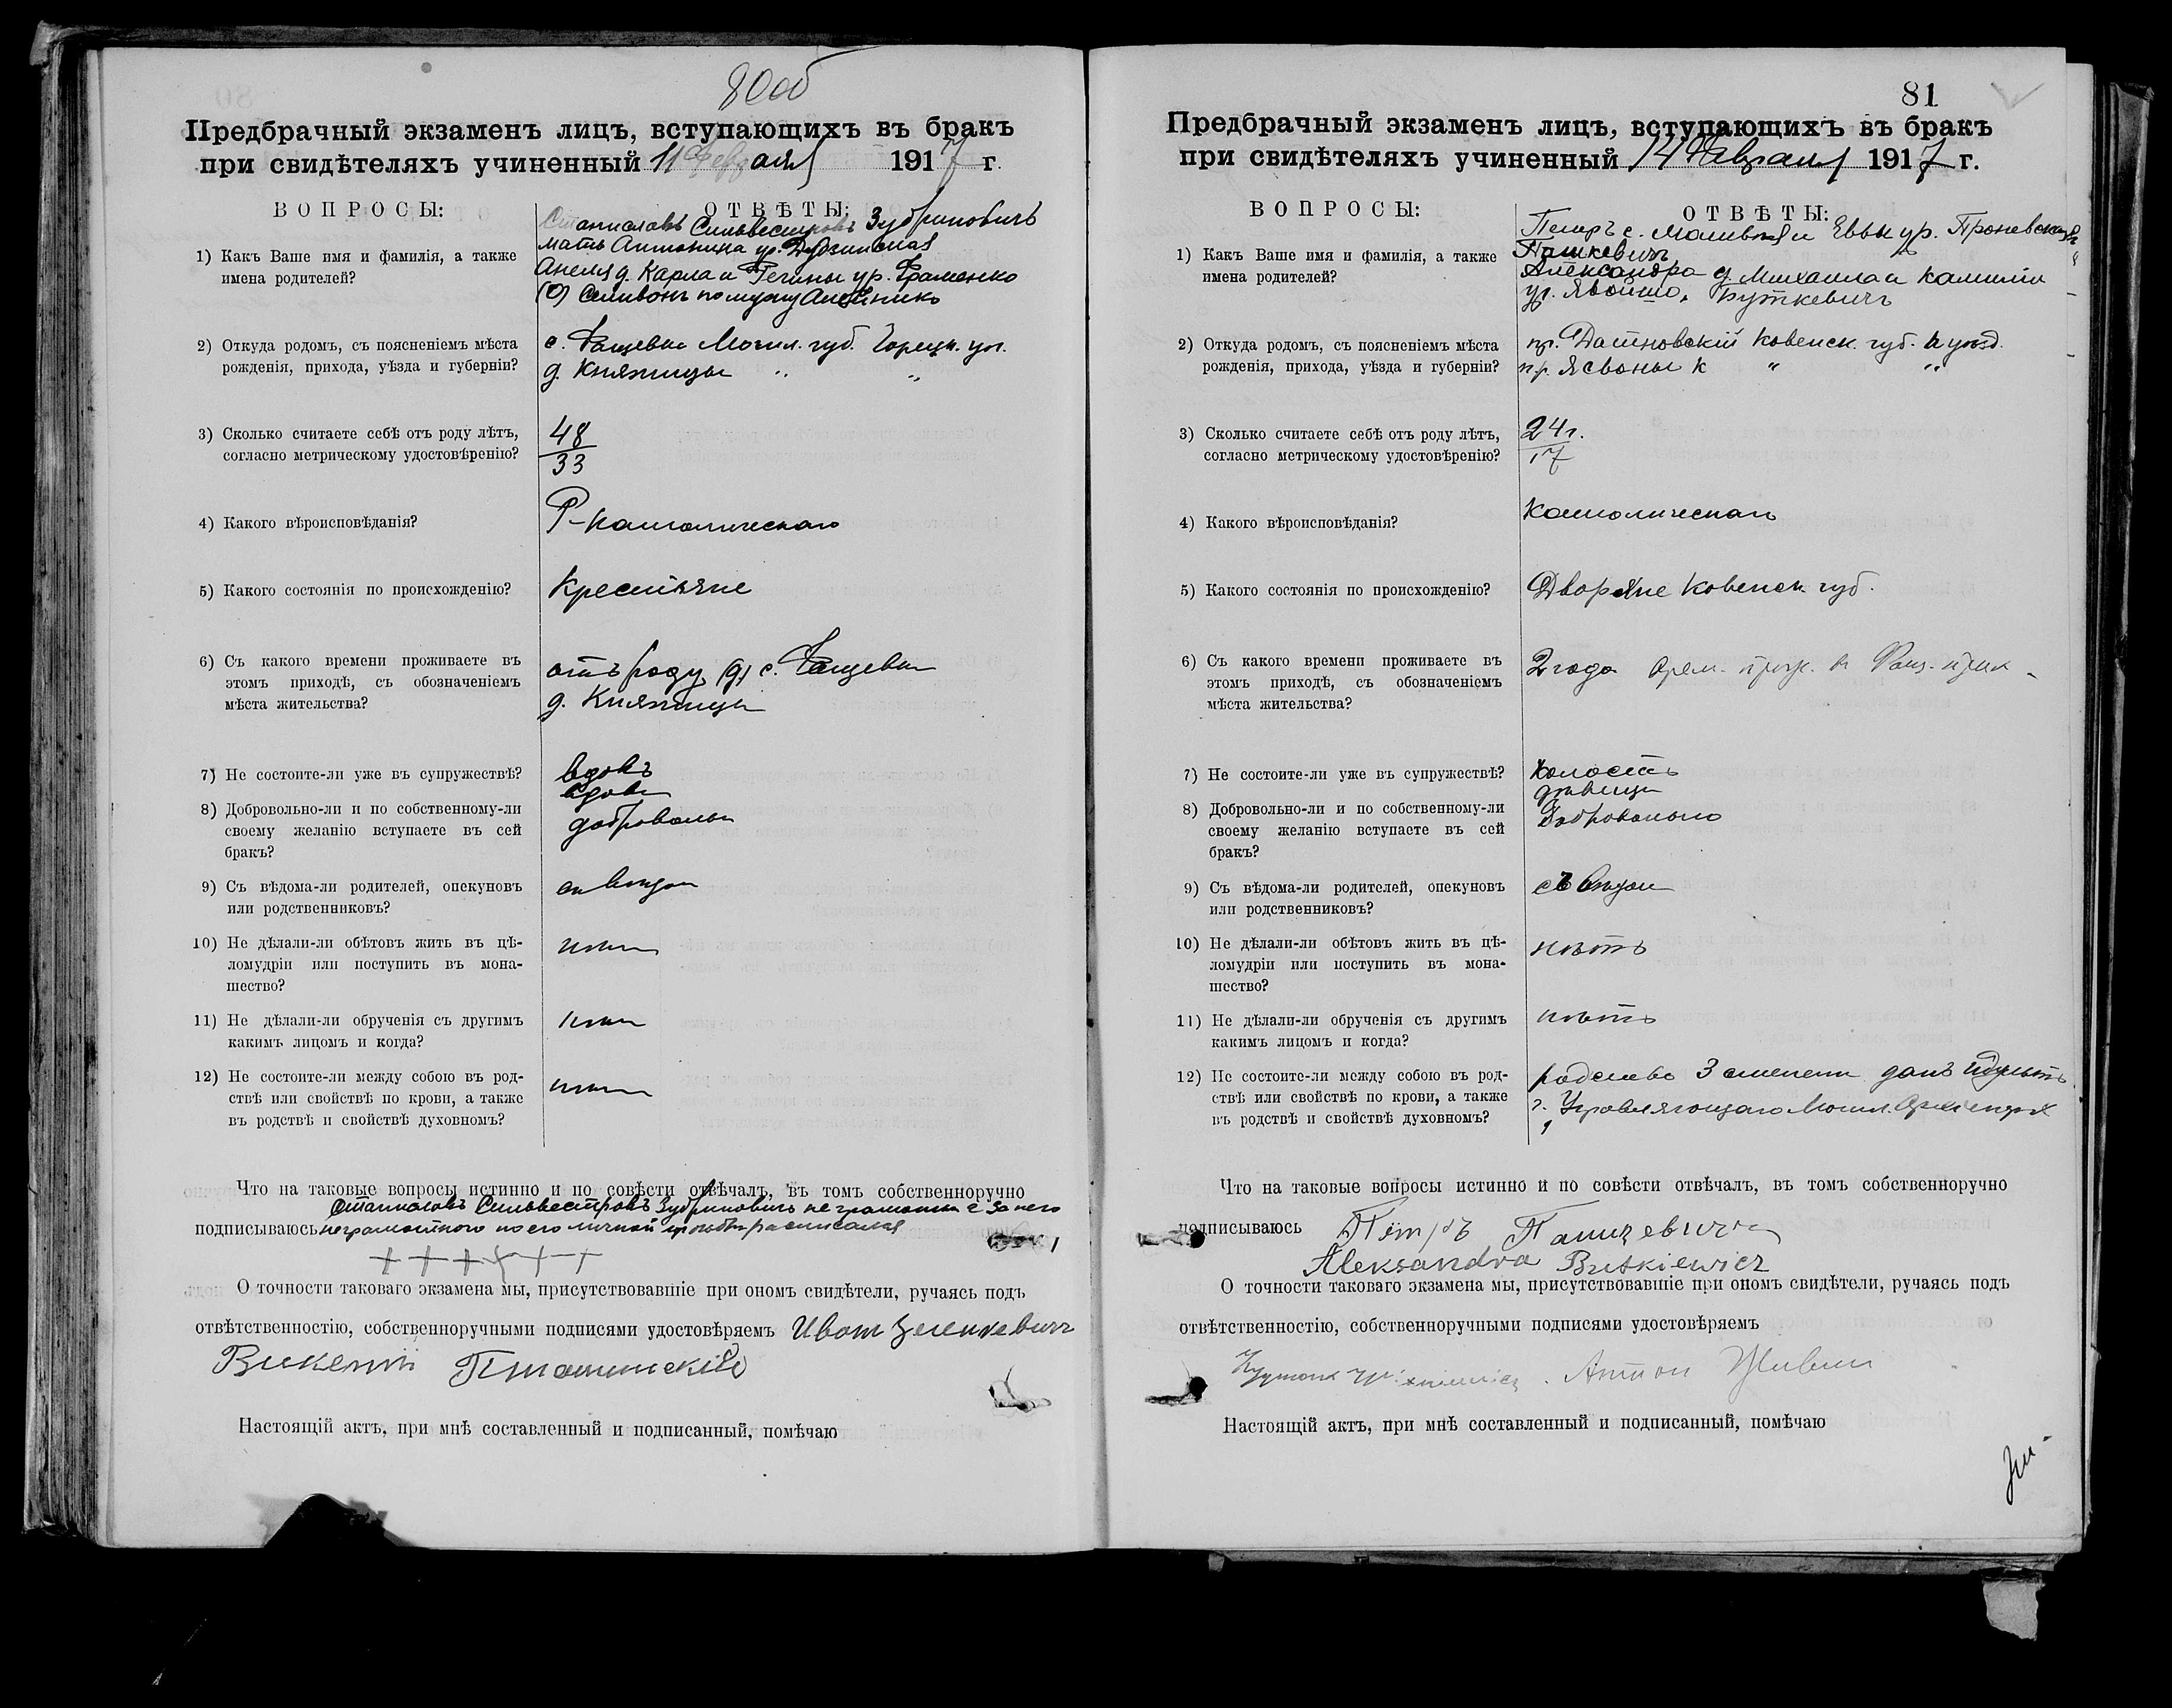 80об
Предбрачный экзаменъ лицъ, вступающихъ въ бракъ
при свидѣтеляхъ учиненный 11 февраля 1917 г.
ВОПРОСЫ:
ОТВѢТЫ:
1) Какъ Ваше имя и фамилія, а также
имена родителей?
Станиславъ Сильвестровъ Зубриновичъ
мать Антонина ур.
Анеля д. Карла и Регины ур. Фраменко
2) Откуда родомъ, съ поясненіемъ мѣста
рожденія, прихода, уѣзда и губерніи?
с. Фащевка Могил. губ. Горецк. у.
д. Княжицы " "
3) Сколько считаете себѣ отъ роду лѣтъ,
согласно метрическому удостовѣренію?
48
33
4) Какого вѣроисповѣданія?
Р-католическаго
5) Какого состоянія по происхожденію?
Крестьяне
6) Съ какого времени проживаете въ
этомъ приходѣ, съ обозначеніемъ
мѣста жительства?
отъ роду с. Фащевка
д. Княжицы
7) Не состоите-ли уже въ супружествѣ?
вдовъ
вдова
8) Добровольно-ли и по собственному-ли
своему желанію вступаете въ сей
бракъ?
добровольно
9) Съ вѣдома-ли родителей, опекуновъ
или родственниковъ?
съ вѣдома
10) Не дѣлали-ли обѣтовъ жить въ цѣ-
ломудріи или поступить въ мона-
шество?
нѣтъ
11) Не дѣлали-ли обрученія съ другимъ
какимъ лицомъ и когда?
нѣтъ
12) Не состоите-ли между собою въ род-
ствѣ или свойствѣ по крови, а также
въ родствѣ и свойствѣ духовномъ?
нѣтъ
Что на таковые вопросы истинно и по совѣсти отвѣчалъ, въ томъ собственноручно
Станиславъ Сильвестровъ Зубриновичъ неграмотный за него
подписываюсь неграмотного по его личной просьбѣ расписался
+ + + + + +
О точности таковаго экзамена мы, присутствовавшіе при ономъ свидѣтели, ручаясь подъ
отвѣтственностію, собственноручными подписями удостовѣряемъ Иванъ Зеленкевичъ
Викентій
Настоящій актъ, при мнѣ составленный и подписанный, помѣчаю
81
Предбрачный экзаменъ лицъ, вступающихъ въ бракъ
при свидѣтеляхъ учиненный 14 февраля 1917 г.
ВОПРОСЫ:
ОТВѢТЫ:
1) Какъ Ваше имя и фамилія, а также
имена родителей?
Петръ с. Матвѣя и Евы ур. Проневская
Пашкевичъ
Александра д. Михаила и Камиліи
ур. Явойшо, Буткевичъ
2) Откуда родомъ, съ поясненіемъ мѣста
рожденія, прихода, уѣзда и губерніи?
пр. Датновскій Ковенск. губ. и уѣзд.
пр. Ясвоны К " "
3) Сколько считаете себѣ отъ роду лѣтъ,
согласно метрическому удостовѣренію?
24 г.
17
4) Какого вѣроисповѣданія?
Католическаго
5) Какого состоянія по происхожденію?
Дворяне Ковенск. губ.
6) Съ какого времени проживаете въ
этомъ приходѣ, съ обозначеніемъ
мѣста жительства?
2 года
7) Не состоите-ли уже въ супружествѣ?
Холостъ
дѣвица
8) Добровольно-ли и по собственному-ли
своему желанію вступаете въ сей
бракъ?
Добровольно
9) Съ вѣдома-ли родителей, опекуновъ
или родственниковъ?
съ вѣдома
10) Не дѣлали-ли обѣтовъ жить въ цѣ-
ломудріи или поступить въ мона-
шество?
нѣтъ
11) Не дѣлали-ли обрученія съ другимъ
какимъ лицомъ и когда?
нѣтъ
12) Не состоите-ли между собою въ род-
ствѣ или свойствѣ по крови, а также
въ родствѣ и свойствѣ духовномъ?
родство 3 степени данъ индультъ
г. Управляющаго Могил. Архіепарх
Что на таковые вопросы истинно и по совѣсти отвѣчалъ, въ томъ собственноручно
подписываюсь Петръ Пашкевичъ
Aleksandra Butkiewicz
О точности таковаго экзамена мы, присутствовавшіе при ономъ свидѣтели, ручаясь подъ
отвѣтственностію, собственноручными подписями удостовѣряемъ
Антон
Настоящій актъ, при мнѣ составленный и подписанный, помѣчаю